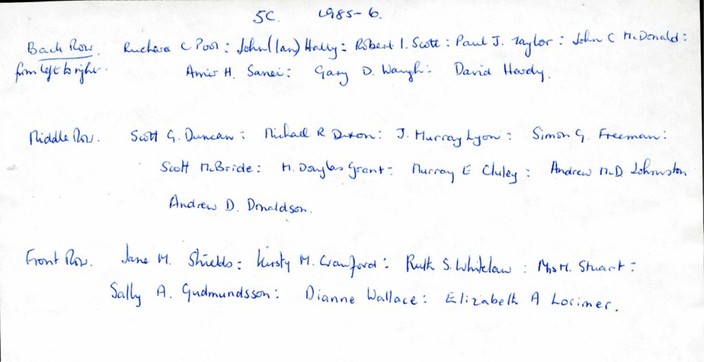 5C. 1985-6.
Back Row. Richard C Pool: John (Ian) Hally: Robert I. Scott: Paul J. Taylor: John C McDonald:
from left to right. Amir H. Sanei: Gary D. Waugh: David Hardy.
Middle Row. Scott G. Duncan: Michael R Dixon: J. Murray Lyon: Simon G. Freeman:
Scott McBride: M. Douglas Grant: Murray E Cluley: Andrew McD Johnston
Andrew D. Donaldson.
Front Row. Jane M. Shields: Kirsty M. Crawford: Ruth S. Whitelaw: Mrs M. Stuart:
Sally A. Gudmundsson: Dianne Wallace: Elizabeth A Lorimer.